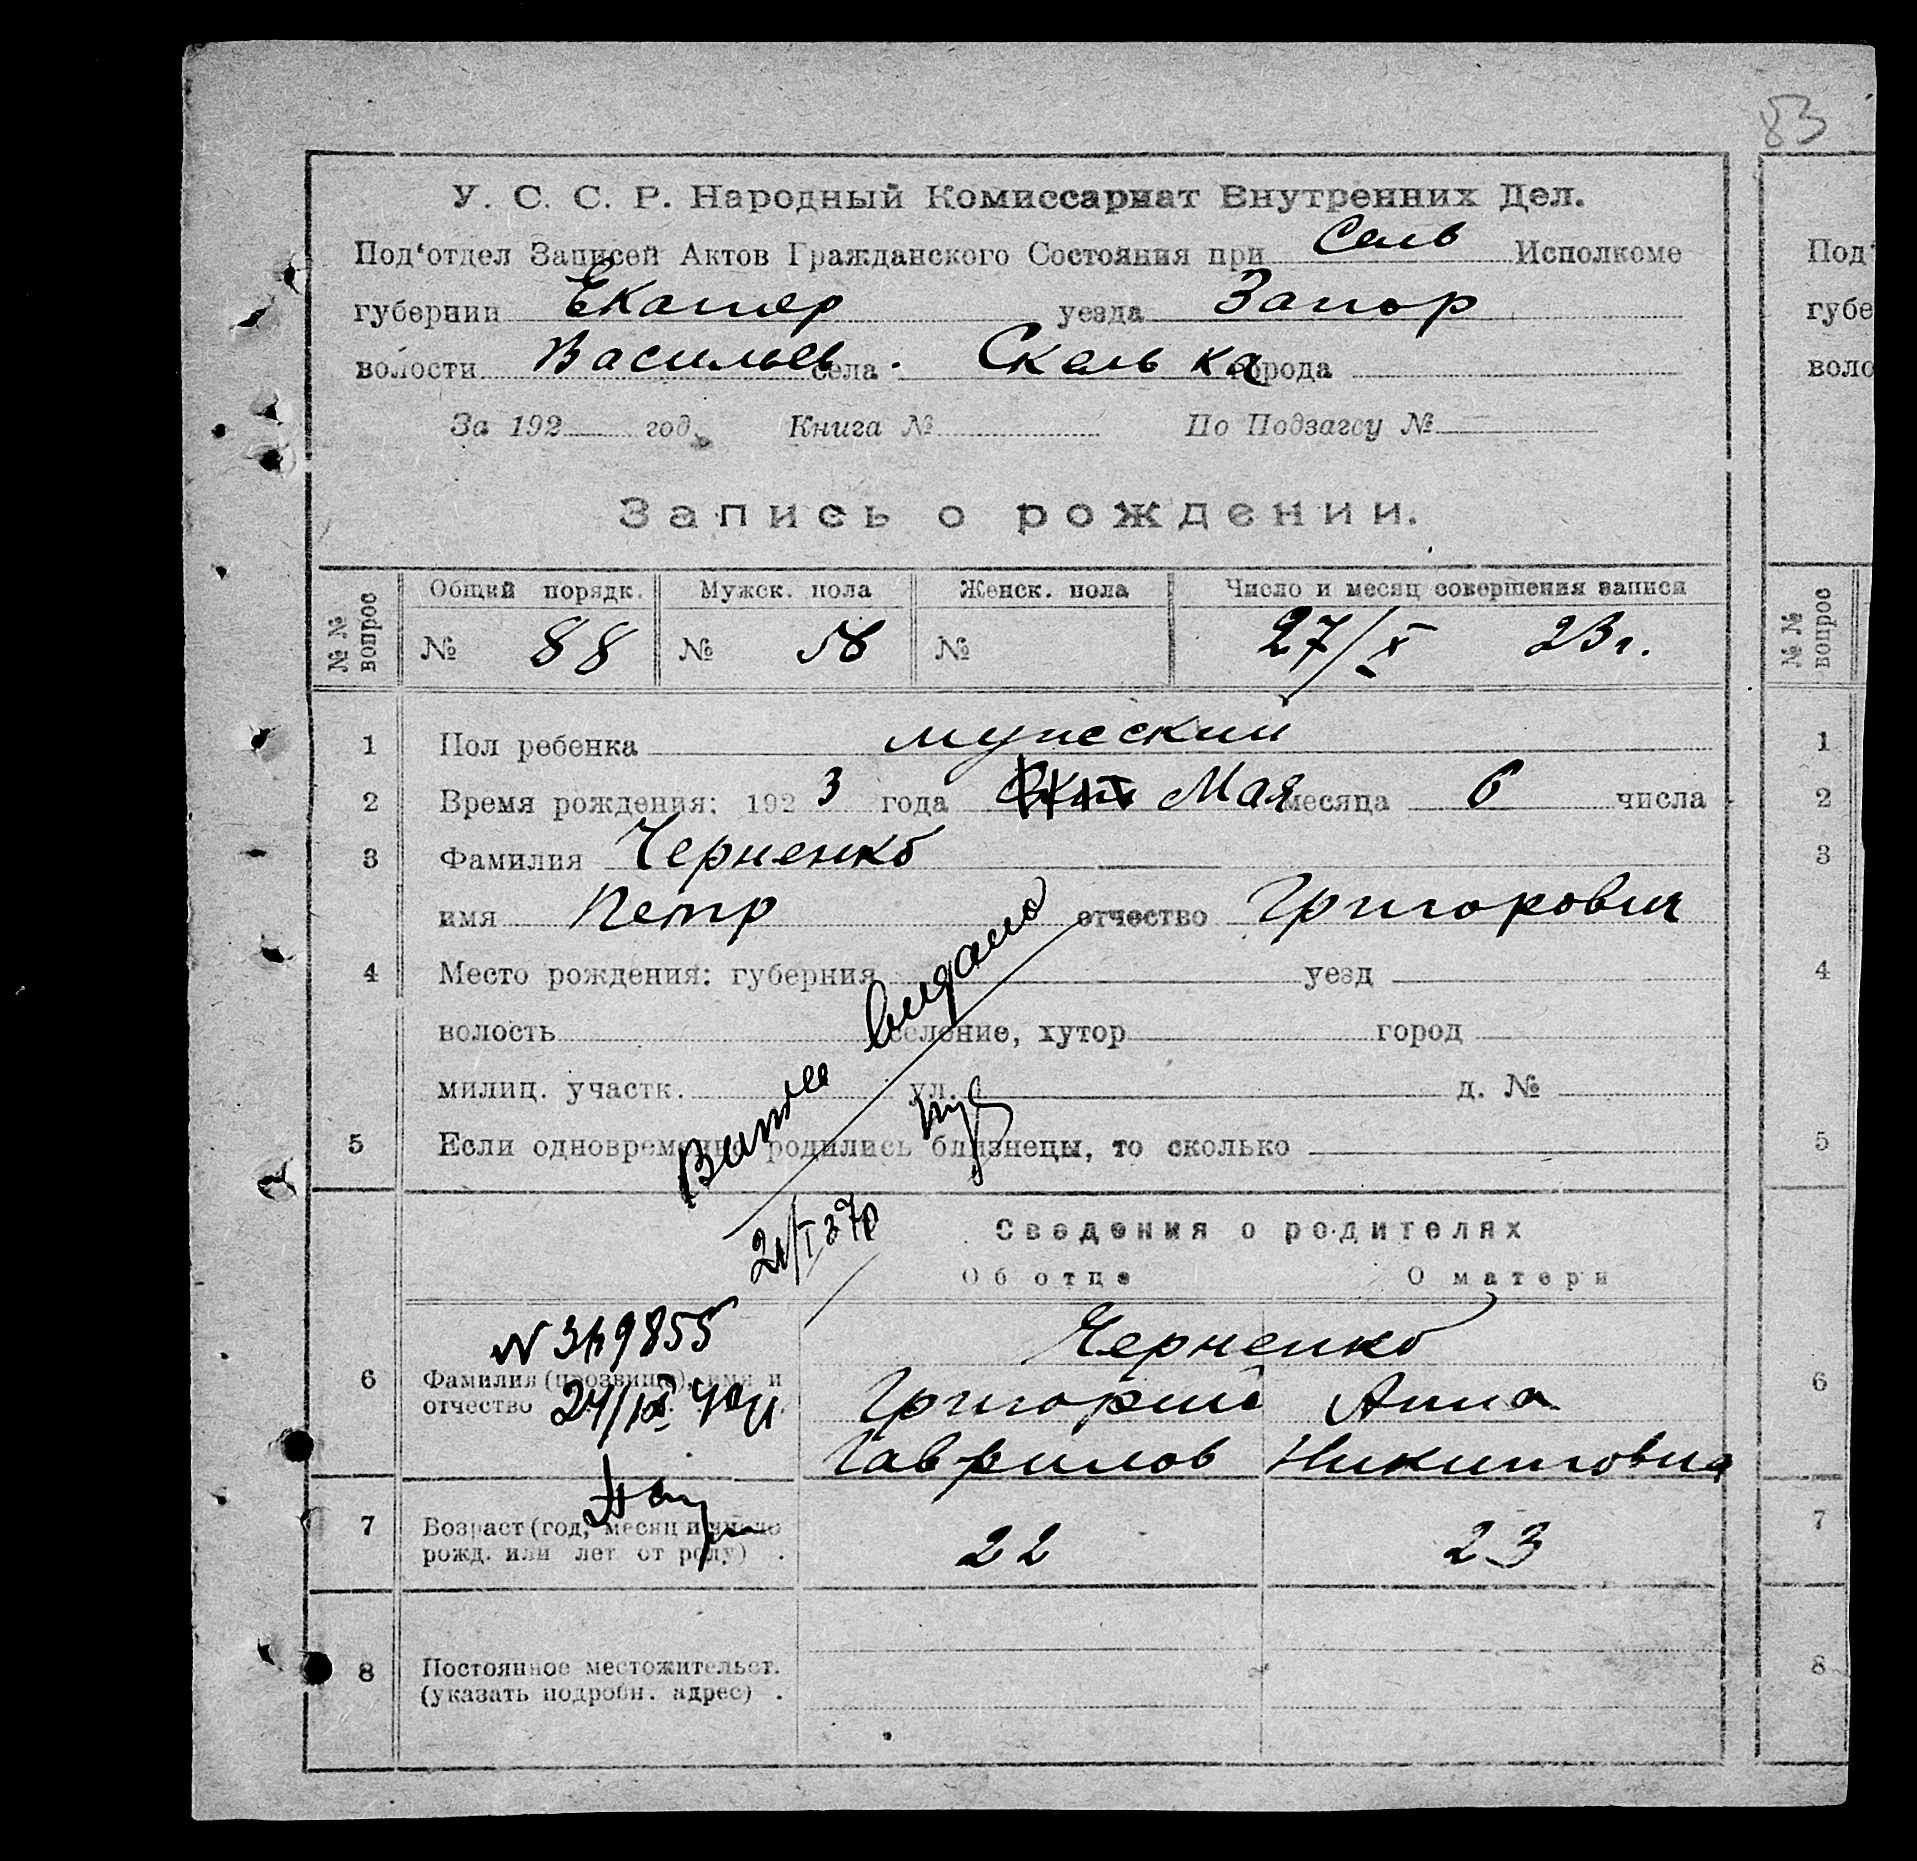 83
У. С. С. Р. Народный Комиссариат Внутренних Дел.
Под‘отдел Записей Актов Гражданского Состояния при Сель Исполкоме
губернии Екатер уезда Запор
волости Васильев. села Скелька города
За 192 год. Книга № По Подзагсу №
Запись о рождении.
№ № вопрос Общий порядк. Мужск. пола Женск. пола Число и месяц совершения записи
№ 88 № 58 № 27/X 23 г.
1 Пол ребенка мужеский
2 Время рождения: 1923 года Мая месяца 6 числа
3 Фамилия Черненко
имя Петр отчество Григорович
4 Место рождения: губерния уезд
волость селение, хутор город
милиц. участк. ул. д. №
5 Если одновременно родились близнецы, то сколько
видано
21/I 37р
Сведения о родителях
Об отце О матери
Черненко
6 Фамилия (прозвище), имя и отчество Григорий Анна
Гаврилов Никитовна
7 Возраст (год, месяц и число рожд. или лет от роду) . 22 23
8 Постоянное местожительст. (указать подробн. адрес) .
Под‘
губе
воло
№ № вопрос
1
2
3
4
5
6
7
8